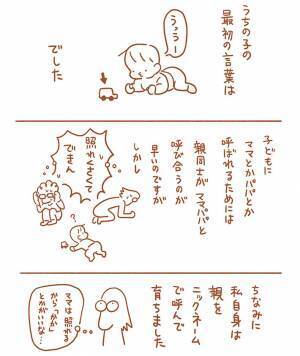 うちの子の
最初の言葉は
うっうー
でした
子どもに
ママとかパパとか
呼ばれるためには
親同士がママパパと
呼び合うのが
早いのですが
しかし
照れくさくて
できん
?
ちなみに
私自身は
親を
ニックネーム
で呼んで
育ちました
ママは照れる
から「かか」
とかがいいな…